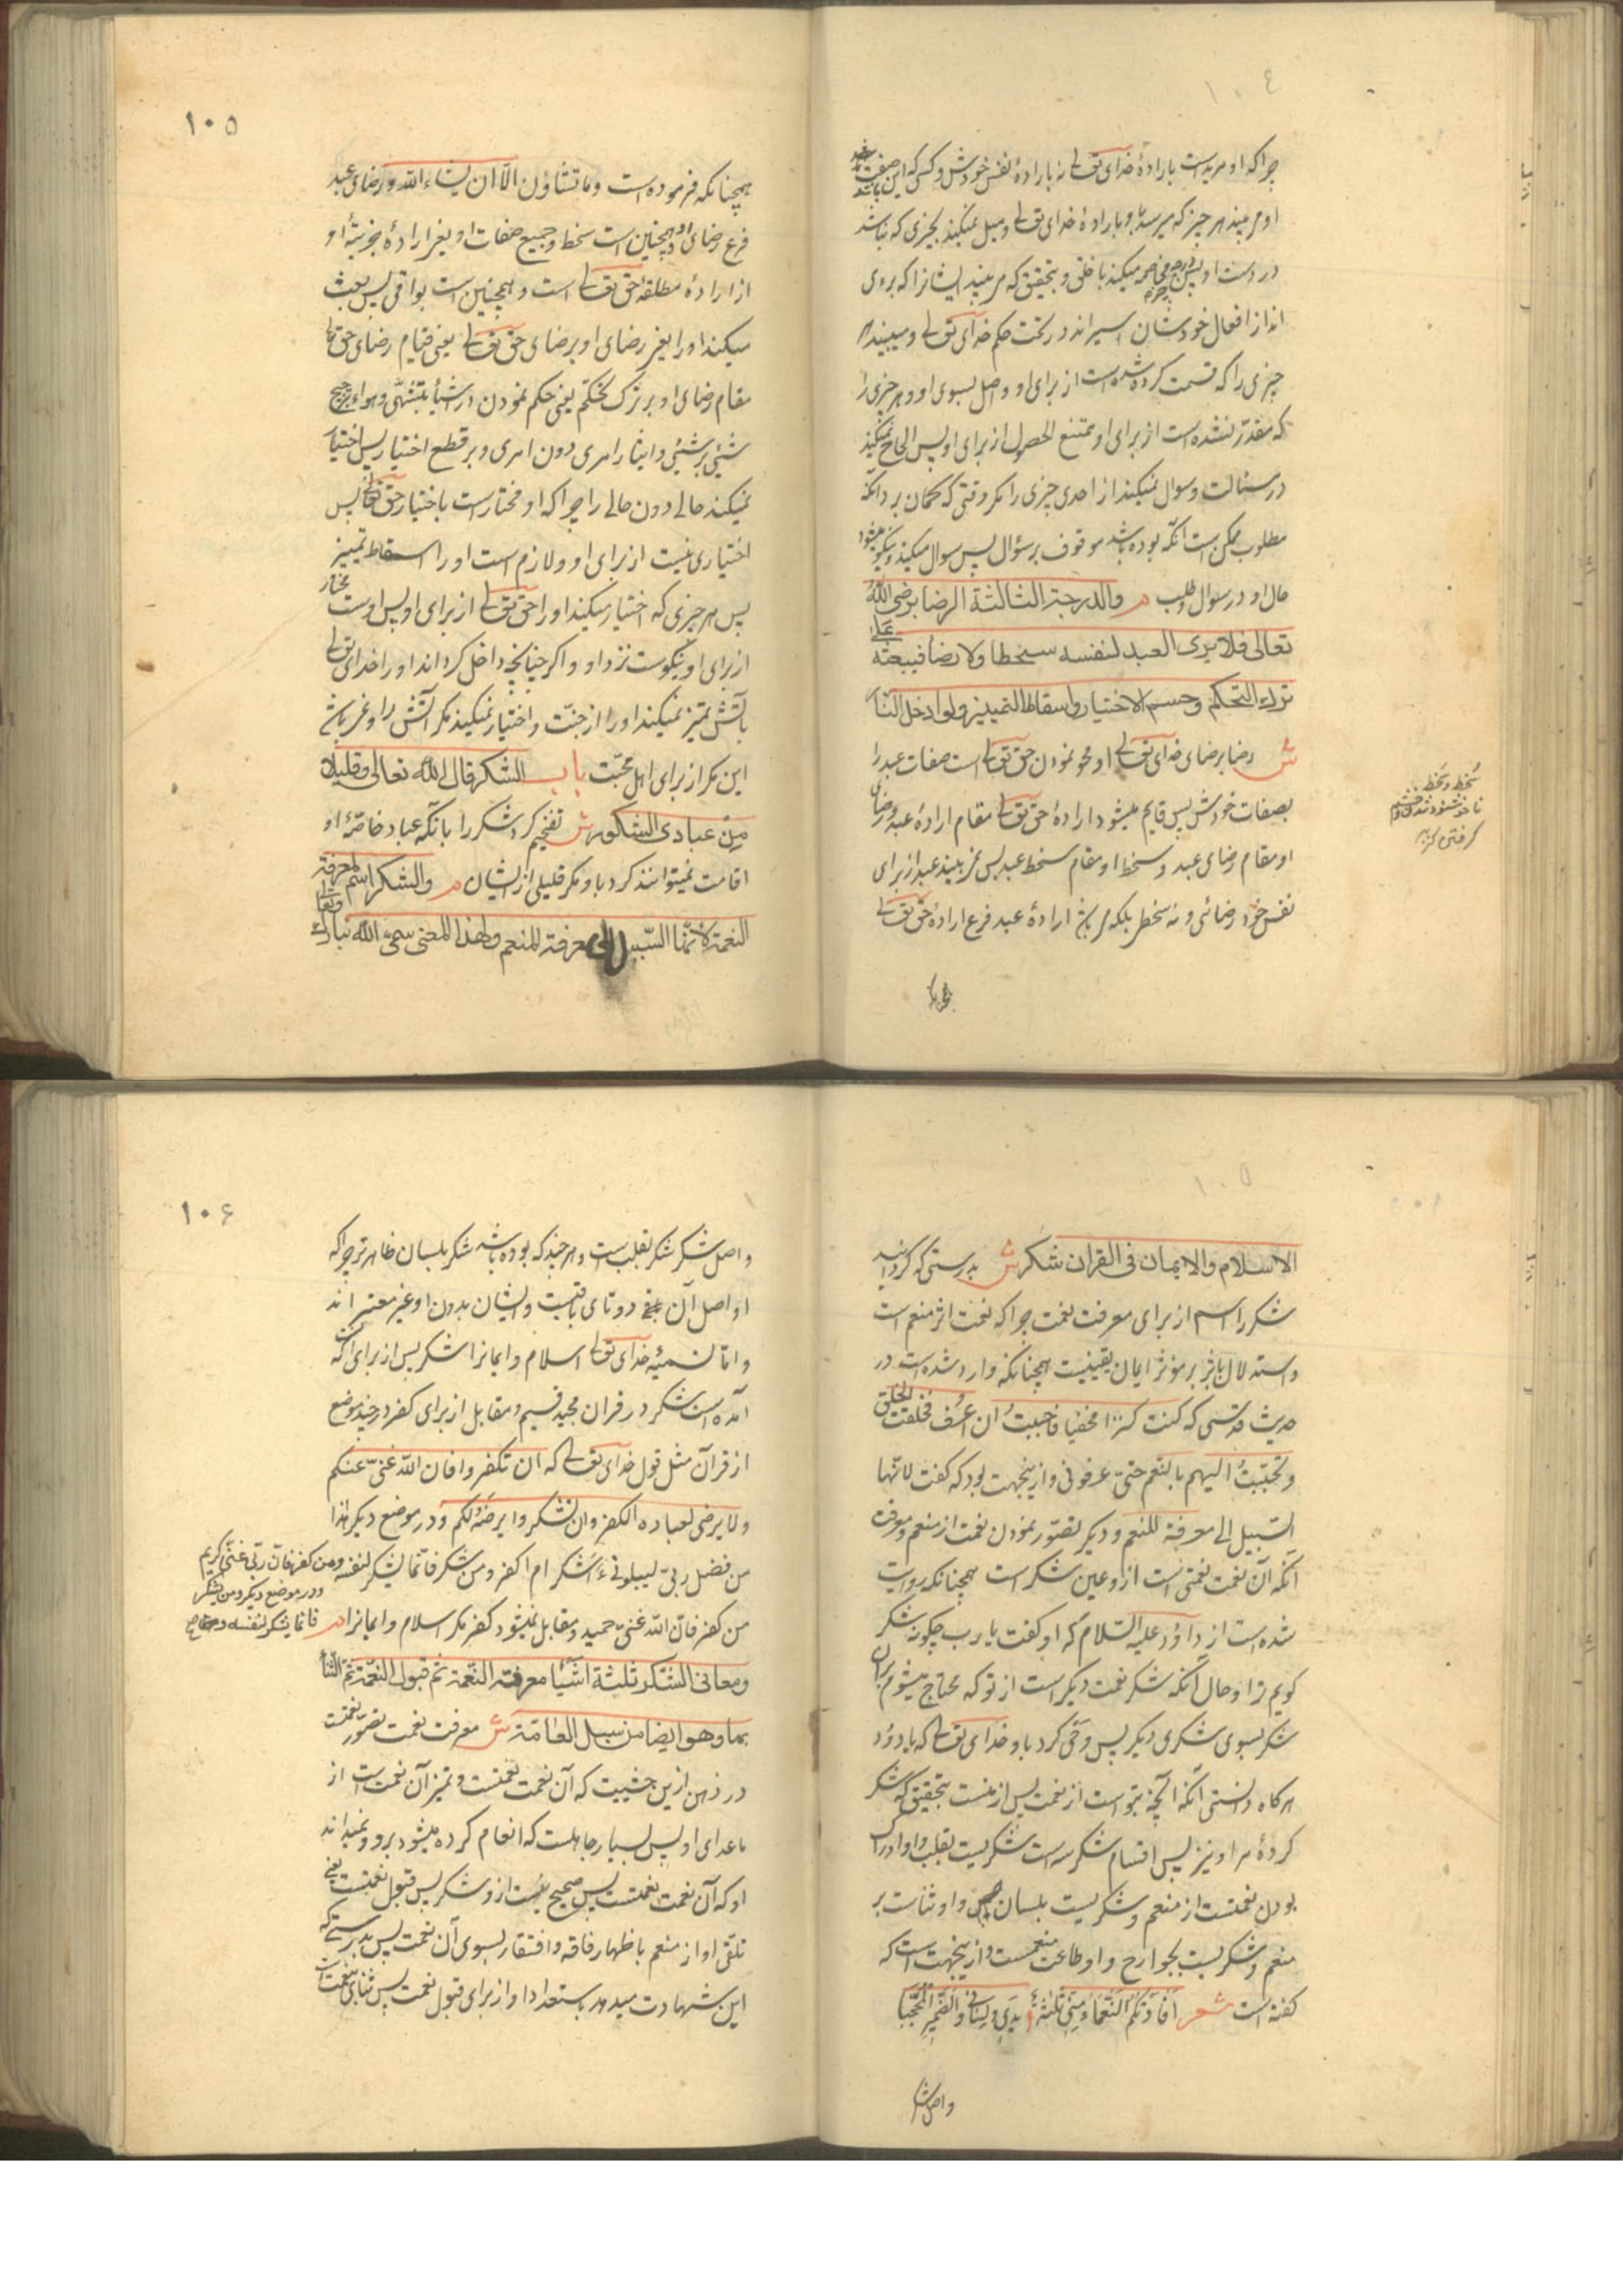 ١٠٤
چرا که او مرید است بارادهٔ خدای تعالی نه بارادهٔ نفس خودش و کسی که این صفت
او می بیند هر چیز که میرسد باو بارادهٔ خدای تعالی و میل نمیکند بچیزی که نباشد
در دست او پس مخاصمه میکند با خلق و بتحقیق که می بیند ایشانرا که بروی
اند از افعال خودشان اسیرانند در تحت حکم خدای تعالی و میبیند
چیزی را که قسمت کرده شده است از برای او واصل بسوی او و هر چیزی را
که مقدّر نشده است از برای او ممتنع الحصول از برای او پس الحاح نمیکند
در مسئالت و سوال نمیکند از احدی چیزی را مگر وقتی که گمان برد آنکه
مطلوب ممکن است آنکه بوده باشد موقوف بر سؤال پس سوال میکند و نیکو میشود
حال او در سوال و طلب م والدرجة الثالثة الرضا برضی الله
تعالی فلا یری العبد لنفسه سخطا ولا رضا فیبعثه علی
ترک التحکم وحسم الاختیار واسقاط التمییز ولو ادخل النار
ش رضا برضای خدای تعالی او محو نمودن حق تعالی است صفات عبد را
بصفات خودش پس قایم میشود ارادهٔ حق تعالی مقام ارادهٔ عبد و رضای
او مقام رضای عبد و سخط او مقام سخط عبد پس نمی بیند عبد از برای
نفس خود رضائی و نه سخطی بلکه ارادهٔ عبد فرع ارادهٔ حق تعالی
سُخط و سَخط
ناخشنود شدن و خشم
گرفتن کنز
همچنانکه
١٠٥
همچنانکه فرموده است وما تشاؤن الّا ان یشاء الله و رضای عبد
فرع رضای او و همچنین است سخط و جمیع صفات او یعنی ارادهٔ جزئیهٔ او
از ارادهٔ مطلقهٔ حق تعالی است و همچنین است بواقی پس بعث
میکند او را یعنی رضای او برضای حق تعالی یعنی قیام رضای حق تعالی
مقام رضای او بر ترک تحکّم یعنی حکم نمودن در اشیا بتشهّی و هوا و ترجیح
شئی بر شئی و ایثار امری دون امری و بر قطع اختیار پس اختیار
نمیکند حالی دون حالی را چرا که او مختار است باختیار حق تعالی پس
اختیاری نیست از برای او و لازم است او را اسقاط تمییز
پس هر چیزی که اختیار میکند او را حق تعالی از برای او پس اوست مختار
از برای او نیکوست نزد او و اگر چنانچه داخل گرداند او را خدای تعالی
بآتش تمیز نمیکند او را از جنّت و اختیار نمیکند مگر آتش را و
این مگر از برای اهل محبّت باب الشکر قال الله تعالی وقلیل
مِن عبادی الشکور ش تفخیم کرد شکر را بآنکه عباد خاصّهٔ او
اقامت نمیتوانند کرد باو مگر قلیلی از ایشان م والشکر اسم لمعرفة
النعمة لانّها السّبیل الی معرفة المنعم ولهذا المعنی سمّی الله تبارک وتعالی
١٠٥
الاسلام والایمان فی القران شکر ش بدرستی که گردانید
شکر را اسم از برای معرفت نعمت چرا که نعمت اثر منعم است
و استدلال باثر بر مؤثر ایمان یقینیست همچنانکه وارد شده است در
حدیث قدسی که کنت کنزا مخفیا فاحببتُ ان اُعرف فخلقت الخلق
وتحبّبتُ الیهم بالنعم حتی عرفونی و ازینجهت بود که گفت لانّها
السّبیل الی معرفة المنعم و دیگر تصوّر نمودن نعمت از منعم و معرفت
آنکه آن نعمت نعمتی است ازو عین شکر است همچنانکه روایت
شده است از داوُد علیه السّلام که او گفت یا رب چگونه شکر
گویم ترا و حال آنکه شکر نعمت دیگر است از تو که محتاج میشوم بران
شکر بسوی شکری دیگر پس وحی کرد باو خدای تعالی که یا داوُد
هرگاه دانستی آنکه آنچه بتو است از نعمت پس از منست بتحقیق که شکر
کردهٔ مرا و نیز پس اقسام شکر سه است شکریست بقلب و او ادراک
بودن نعمتست از منعم و شکریست بلسان و او ثناست بر
منعم و شکریست بجوارح و او طاعت منعمست و ازینجهت است که
گفته است شعر اَفادَتکُم النَّعْماءُ مِنّی ثلثةً یدی و لِسانی والضَّمیرَ المُحَجَّبا
واصل شکر
١٠٦
واصل شکر شکر بقلب است و هر چند که بوده باشد شکر بلسان ظاهرتر چرا که
او اصل آن دوتای باقیست و ایشان بدون او غیر معتبر اند
و امّا تسمیهٔ خدای تعالی اسلام و ایمانرا شکر پس از برای آنکه
آمده است شکر در قران مجید قسیم و مقابل از برای کفر در چند موضع
از قرآن مثل قول خدای تعالی که ان تکفروا فان الله غنیّ عنکم
ولا یرضی لعباده الکفر وان تشکروا یرضه لکم و در موضع دیگر هذا
من فضل ربّی لیبلونی ءاشکر ام اکفر ومن شکر فانّما یشکر لنفسه ومن کفر فان ربّی غنیّ کریم
و در موضع دیگر ومن یشکر
فانّما یشکر لنفسه و
من کفر فانّ الله غنیّ حمید و مقابل نمیشود کفر مگر اسلام و ایمانرا م
ومعانی الشکر ثلثة اشیآء معرفة النعمة ثم قبول النعمة ثمّ الثناء
بها وهو ایضا من سبل العامّة ش معرفت نعمت تصوّر نعمتست
در ذهن ازین حیثیت که آن نعمت نعمتست و تمیز آن نعمت است از
ماعدای او پس بسیار جاهلست که انعام کرده میشود برو و نمیداند
او که آن نعمت نعمتست پس صحیح نیست ازو شکر پس قبول نعمتست یعنی
تلقّی او از منعم باظهار فاقه و افتقار بسوی آن نعمت پس بدرستی که
این شهادت میدهد باستعداد او از برای قبول نعمت پس ثنای بنعمت است